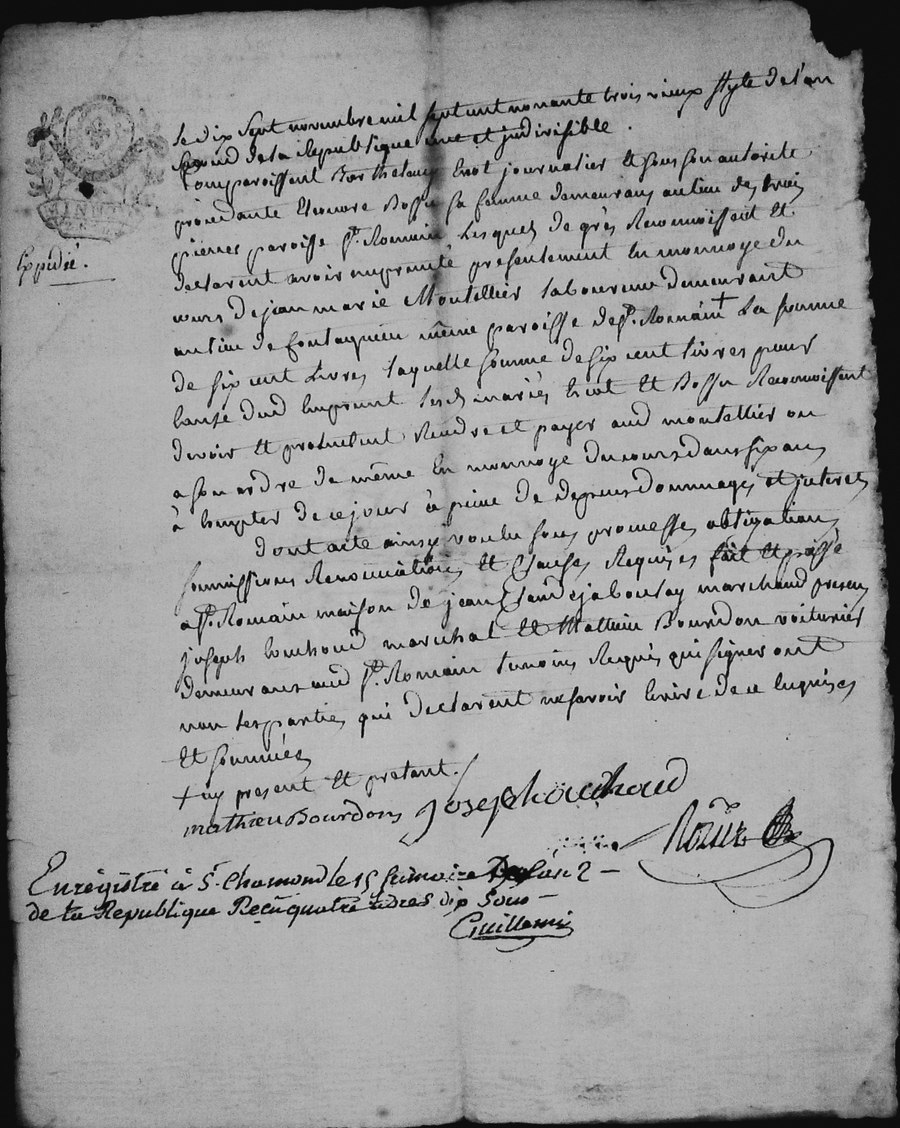 Le dix Sept novembre mil sept cent nonante trois vieux style de l'an
second de la Republique une et jndivisible.
Comparoissent Barthelemy journalier Et sous son autorite
procedante Eleonore sa femme demeurans au lieu des trois
pierres paroisse St. Romain Lesquels de grès Reconnoissent Et
declarent avoir emprunté presentement En monnoye du
cours de jean marie Montellier laboureur demeurant
au lieu de même paroisse de St. Romain + La somme
de six cent Livres laquelle somme de six cent livres pour
Cause dud Emprunt Lesd mariés Et Reconnoissent
devoir Et promettent Rendre et payer aud montellier ou
a son ordre de même En monnoye du cours dans six ans
à Compter de ce jour à peine de depens dommages et jnterets
Dont acte ainsy voulu sous promesses obligations
soumissions Renonciations Et Clauses Requises fait Et passé
a St. Romain maison de jean Claude jaboulay marchand presens
joseph marchal Et Mathieu Bourdon voiturier
demeurans aud St. Romain temoins Requis qui signeront
non les parties qui declarent ne savoir Ecrire de ce Enquises
Et sommées
+ icy present Et pretant.
mathieu Bourdon joseph
Expedié.
Enregistré à St. Chamond le 15 frimaire l'an 2 —
de la Republique Reçu quatre livres dix sous —
Guillemin